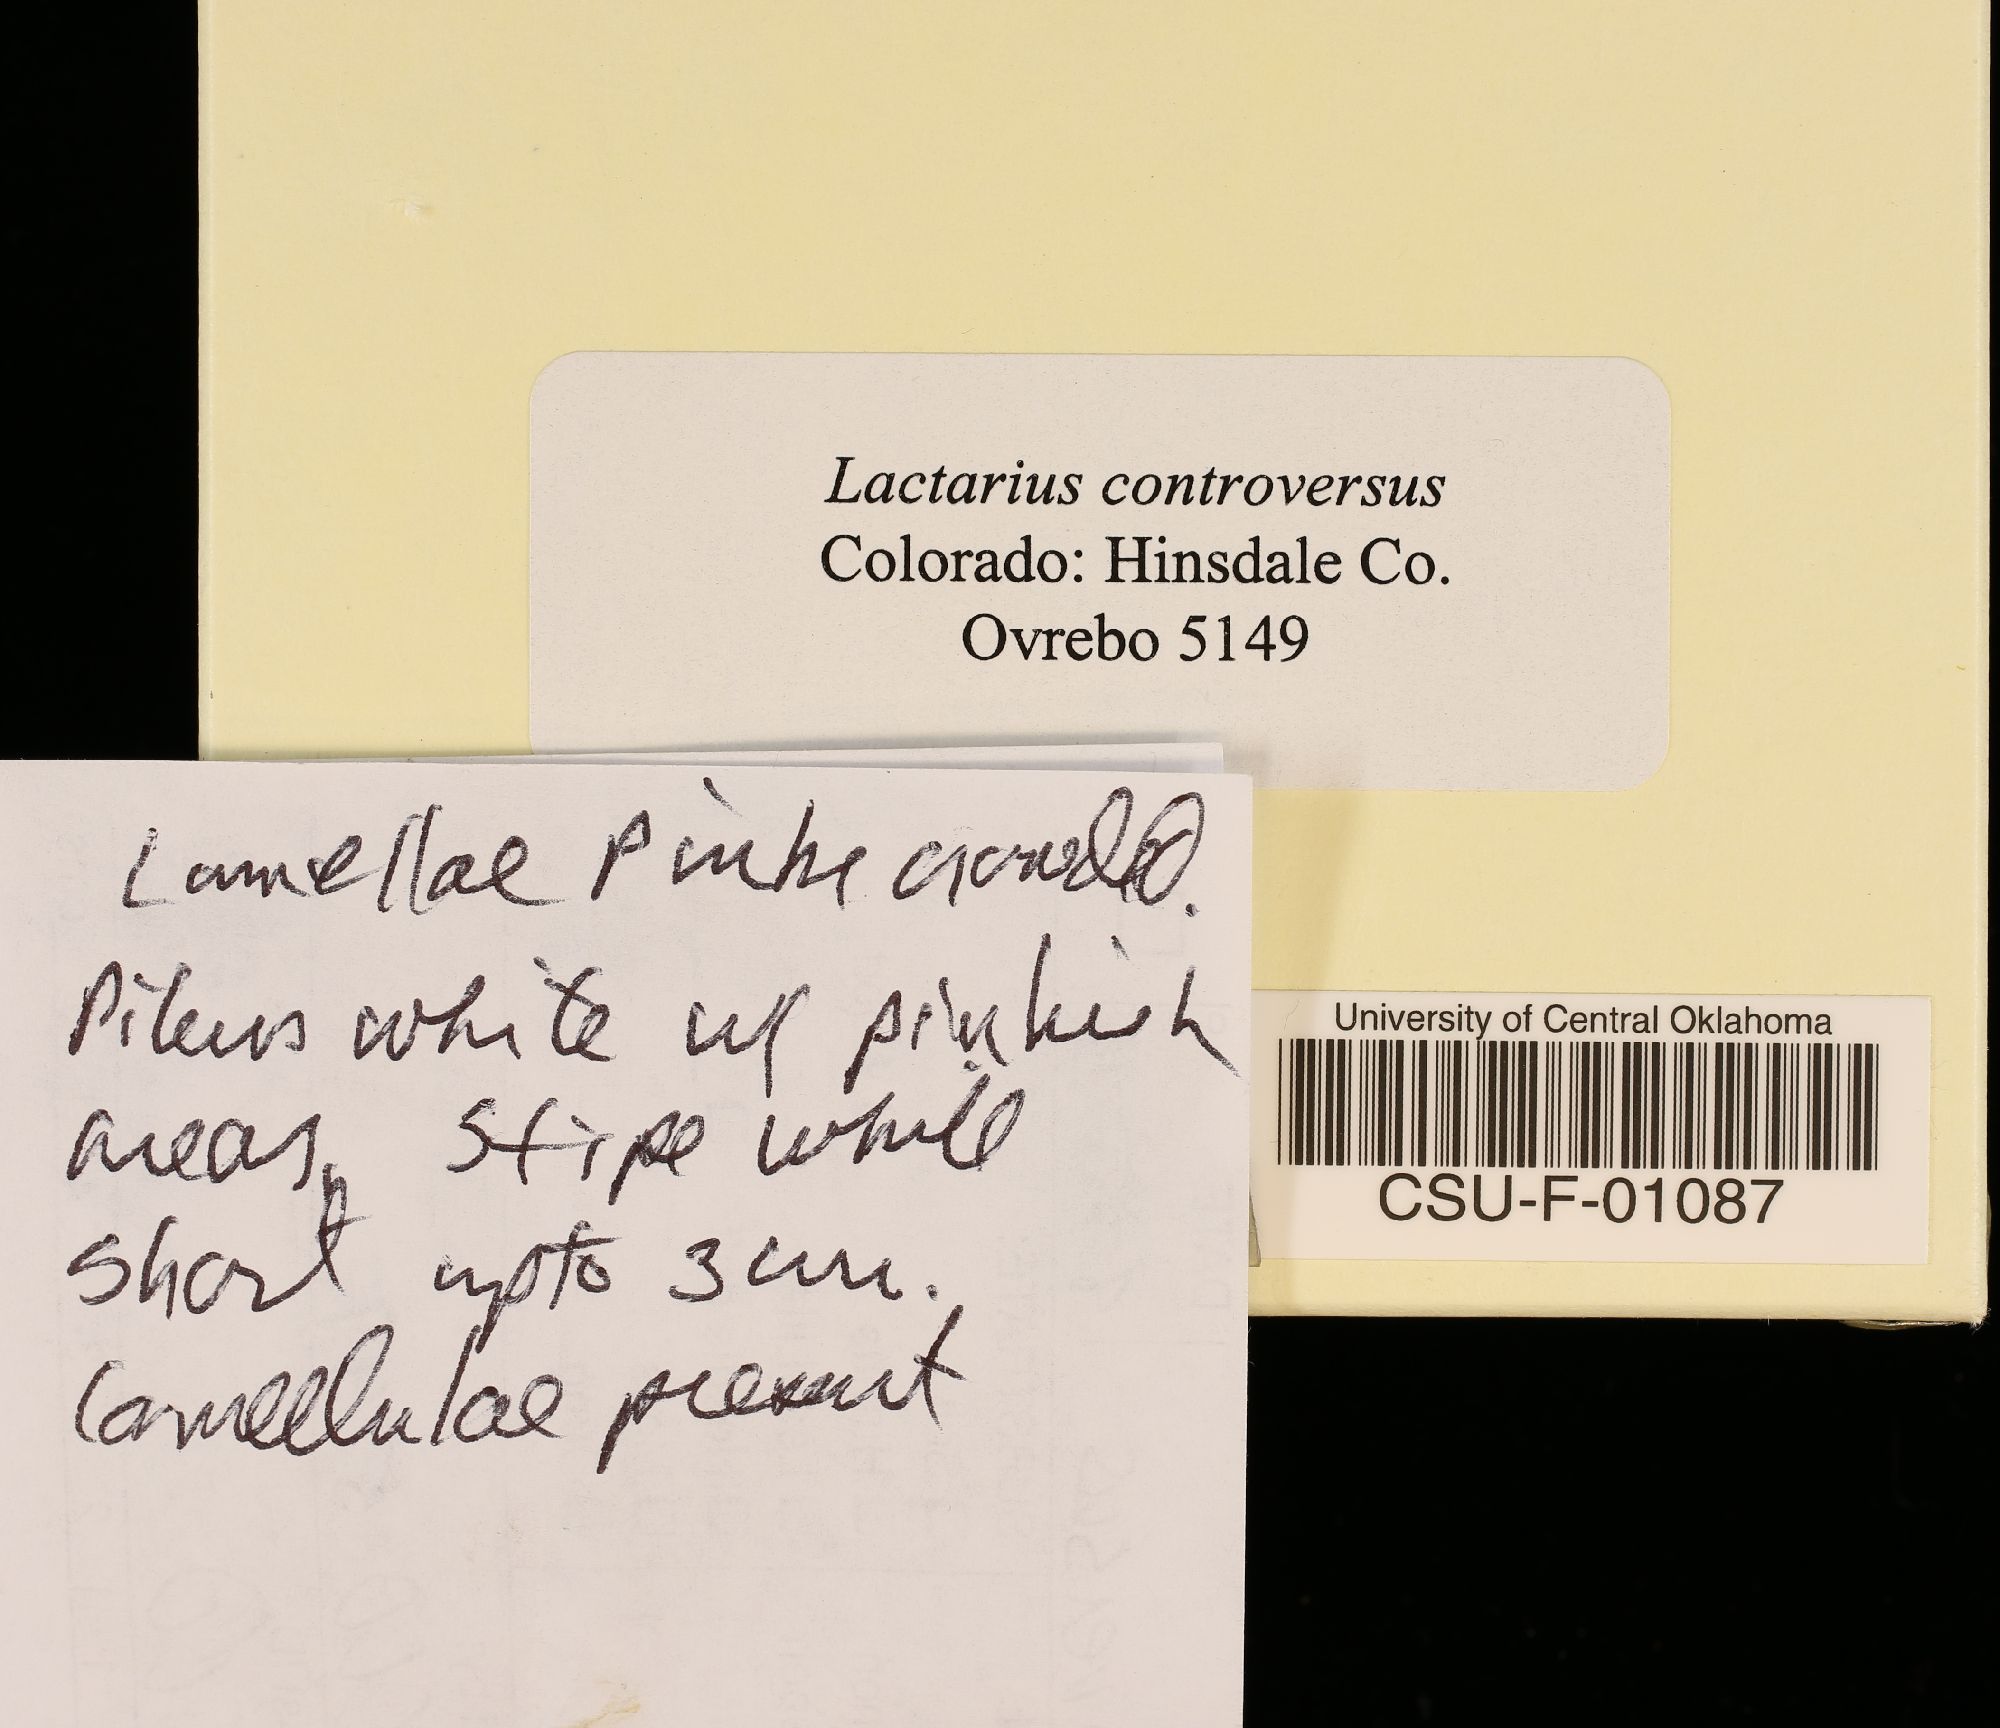 Lactarius controversus
Colorado: Hinsdale Co.
Ovrebo 5149
Lamellae Pink crowded.
Pileus white w/ pinkish
areas, Stipe white
short upto 3 cm.
Lamellulae present
University of Central Oklahoma
CSU-F-01087